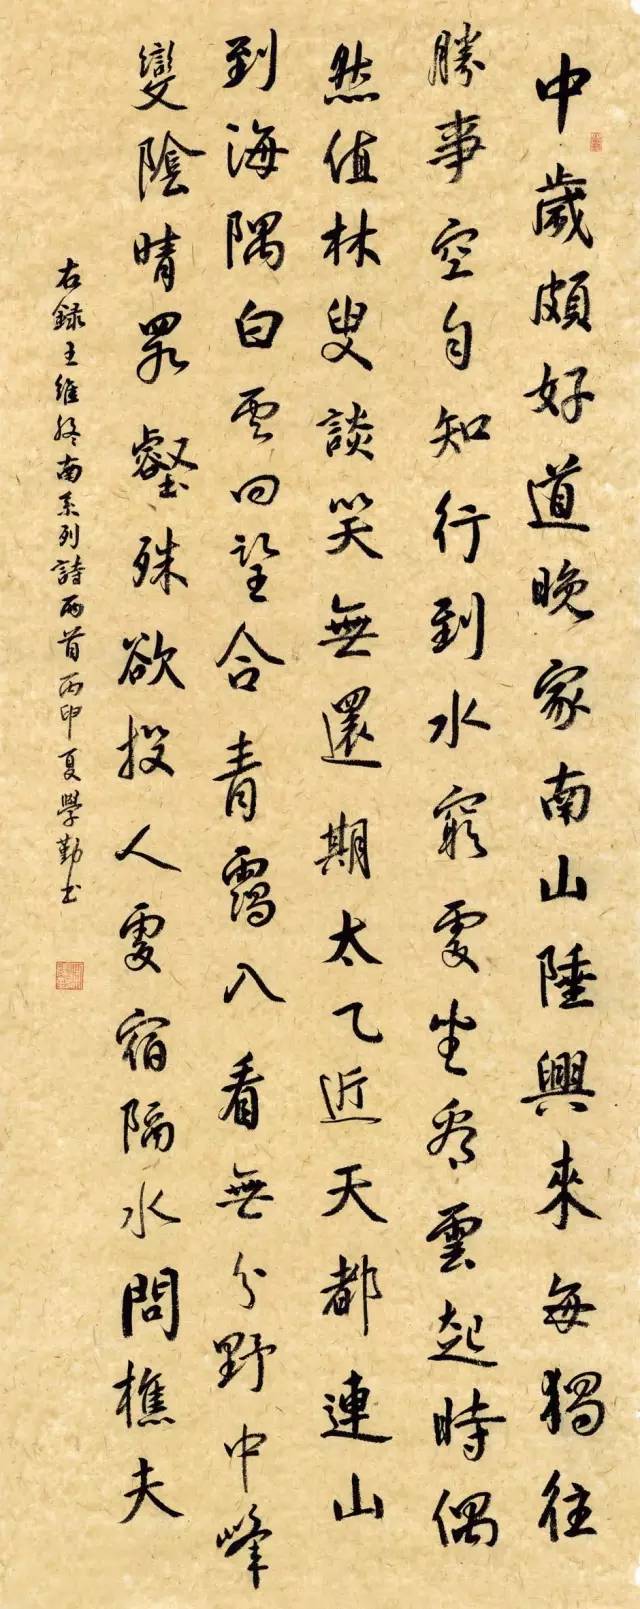 中歲頗好道晚家南山陲興來每獨往
勝事空自知行到水窮處坐看雲起時偶
然值林叟談笑無還期太乙近天都連山
到海隅白雲回望合青靄入看無分野中峰
變陰晴眾壑殊欲投人處宿隔水問樵夫
右録王維終南系列詩兩首丙申夏學勤書